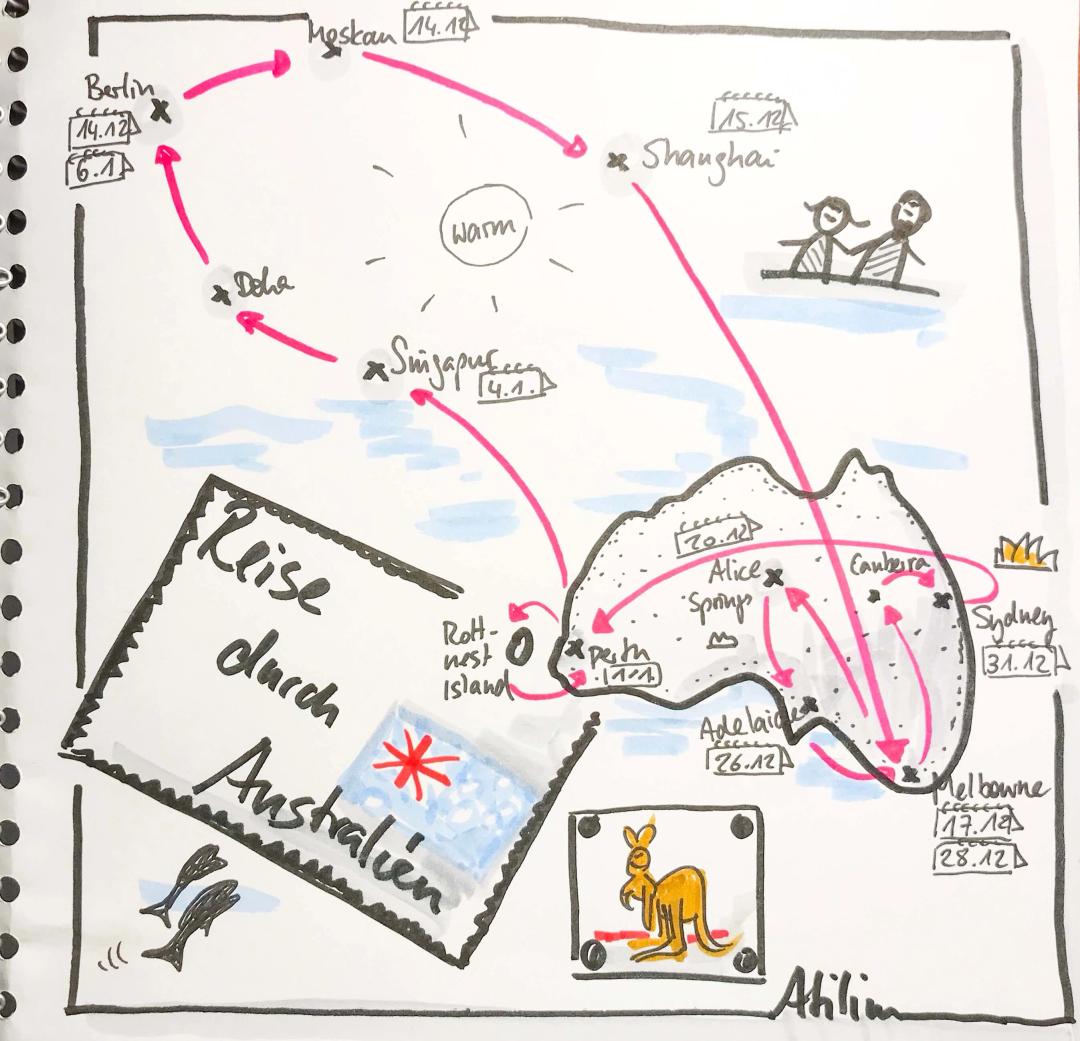 Moskau 14.12
Berlin
14.12
6.1
15.12
Shanghai
warm
Doha
Singapur
4.1.
20.12
Alice
Springs
Canberra
Sydney
31.12
Rott-
nest
Island
Perth
1.1
Adelaide
26.12
Melbourne
17.12
28.12
Reise
durch
Australien
Atilim